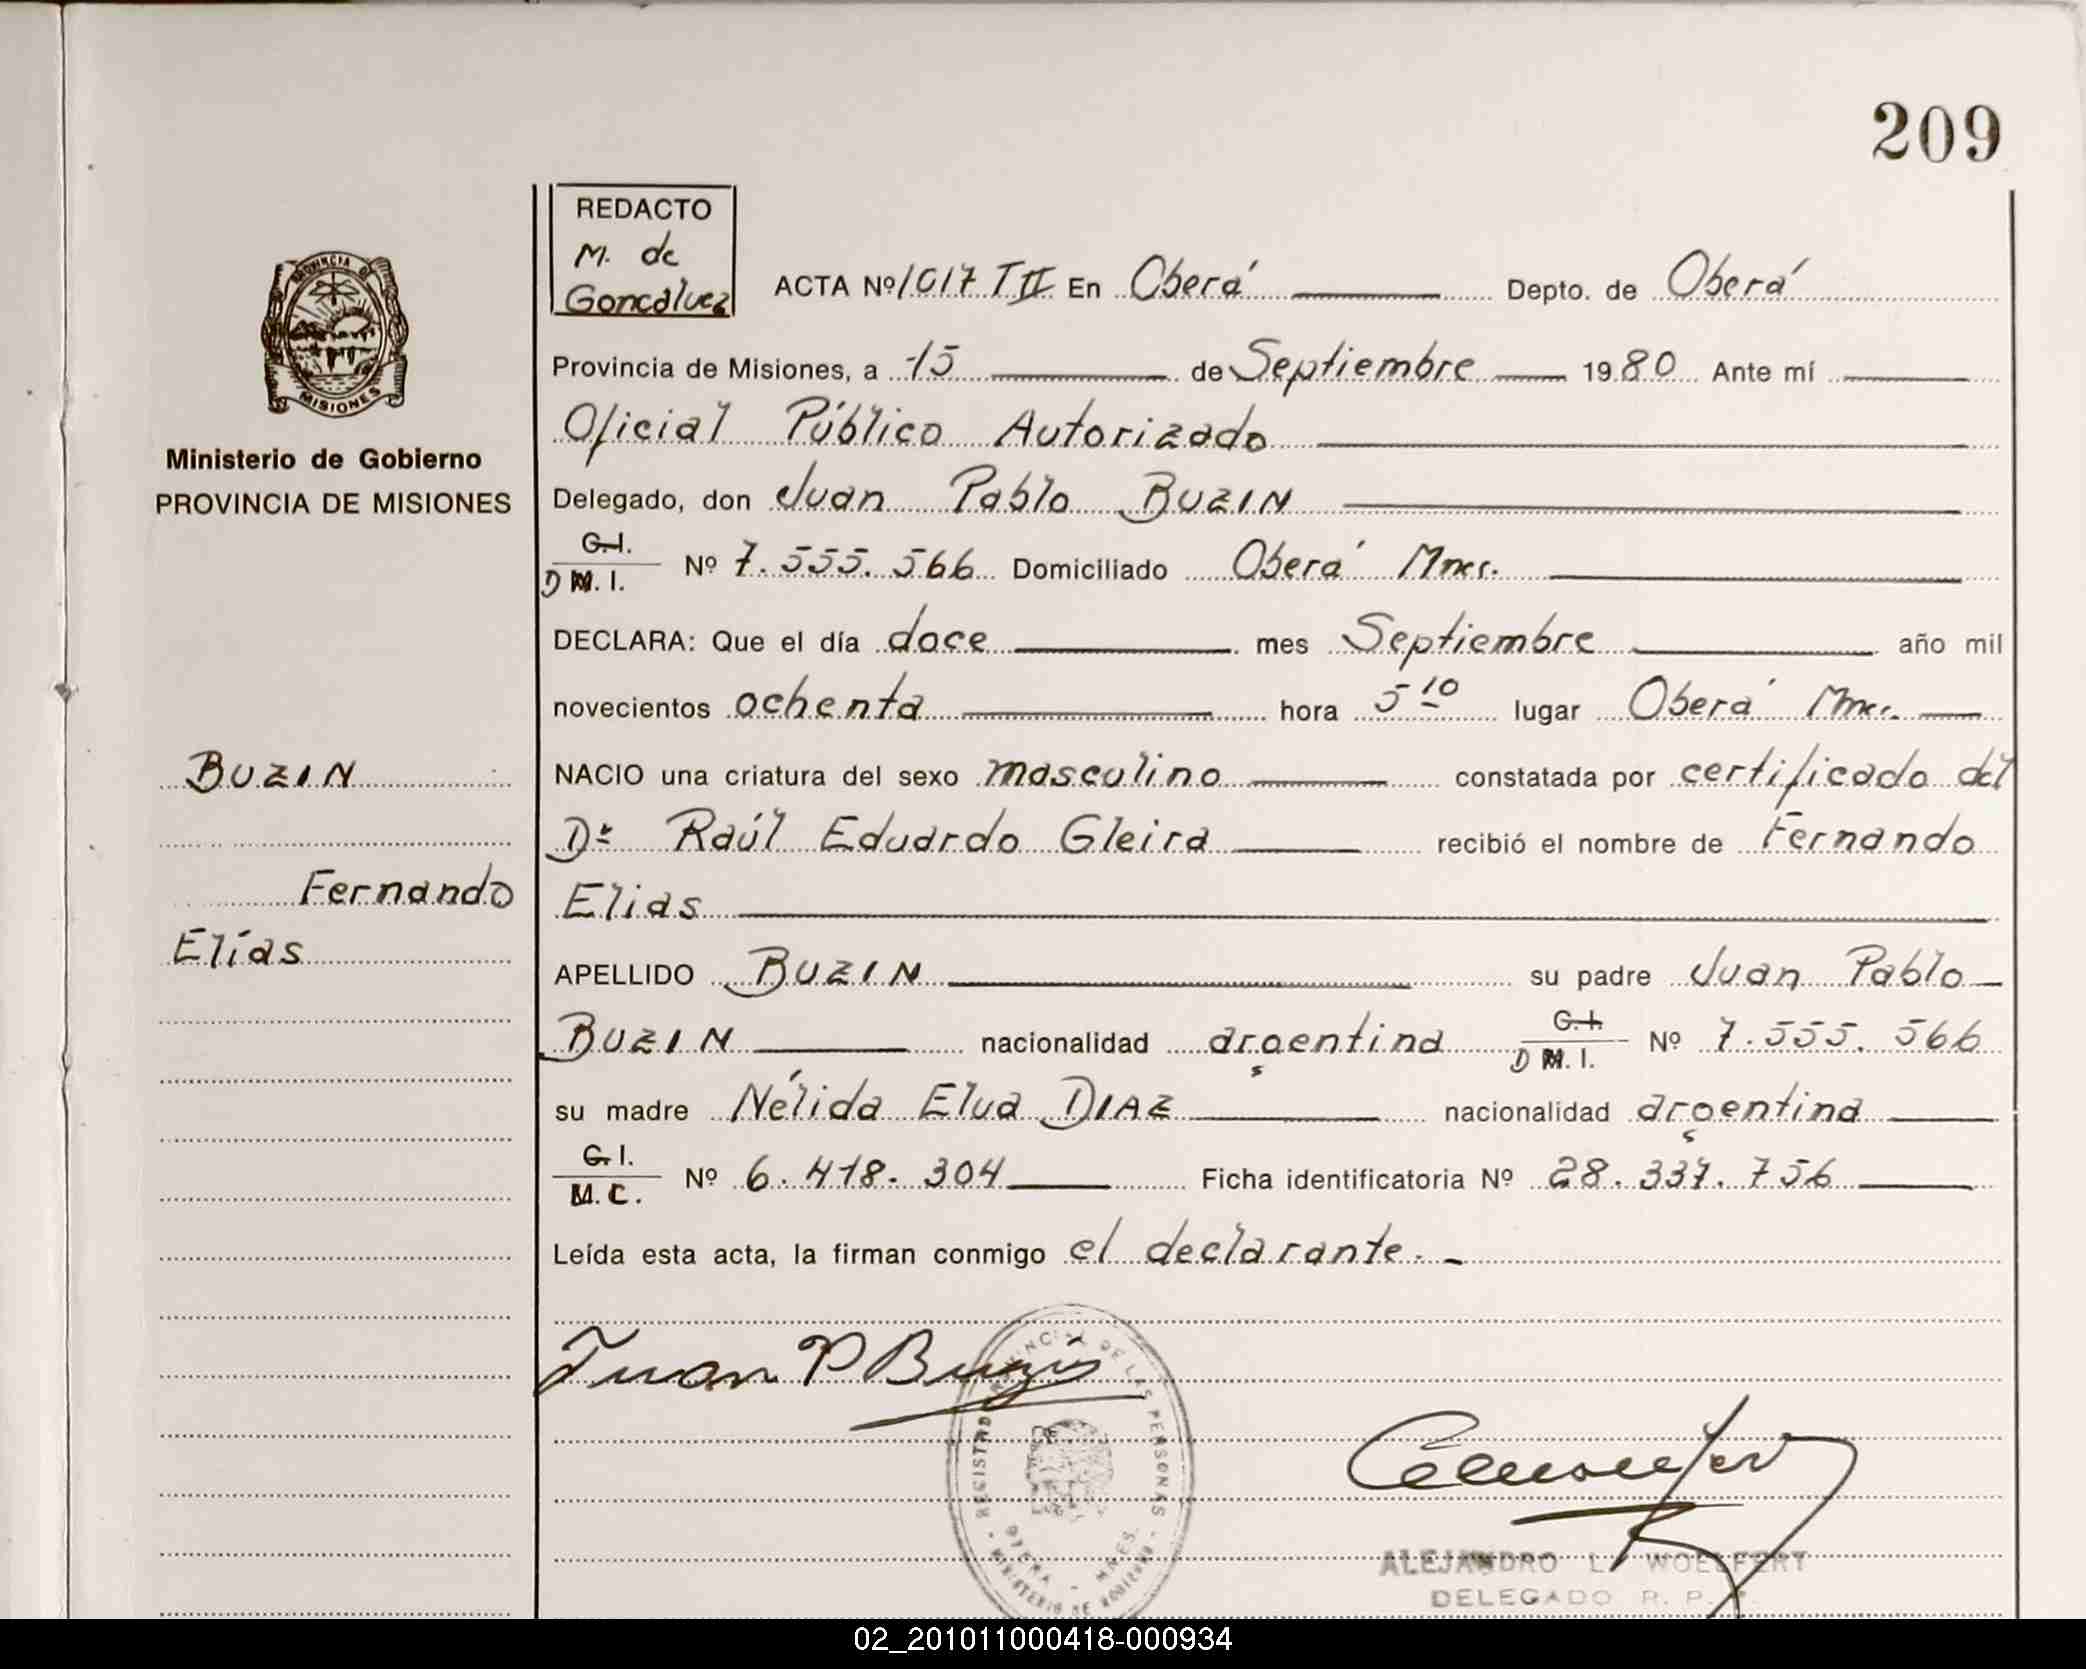 209
REDACTO
M. de
Goncalvez
ACTA Nº 1017 T II En Oberá Depto. de Oberá
Provincia de Misiones, a 15 de Septiembre 1980 Ante mí
Oficial Público Autorizado
Delegado, don Juan Pablo BUZIN
C.I.
D M.I. Nº 7.555.566 Domiciliado Oberá Mnes.
DECLARA: Que el día doce mes Septiembre año mil
novecientos ochenta hora 5 10 lugar Oberá Mnes.
NACIO una criatura del sexo masculino constatada por certificado del
Dr Raúl Eduardo Gleira recibió el nombre de Fernando
Elias
APELLIDO BUZIN su padre Juan Pablo
BUZIN nacionalidad argentina C.I. D M.I. Nº 7.555.566
su madre Nélida Elva DIAZ nacionalidad argentina
C.I.
M.C. Nº 6.418.304 Ficha identificatoria Nº 28.337.756
Leída esta acta, la firman conmigo el declarante.
Juan P Buzin
PROVINCIA DE
MISIONES
Ministerio de Gobierno
PROVINCIA DE MISIONES
BUZIN
Fernando
Elías
REGISTRO PROVINCIAL DE LAS PERSONAS
OBERA - MNES.
MINISTERIO DE GOBIERNO
ALEJANDRO L. WOELFERT
DELEGADO R. P.
02_201011000418-000934